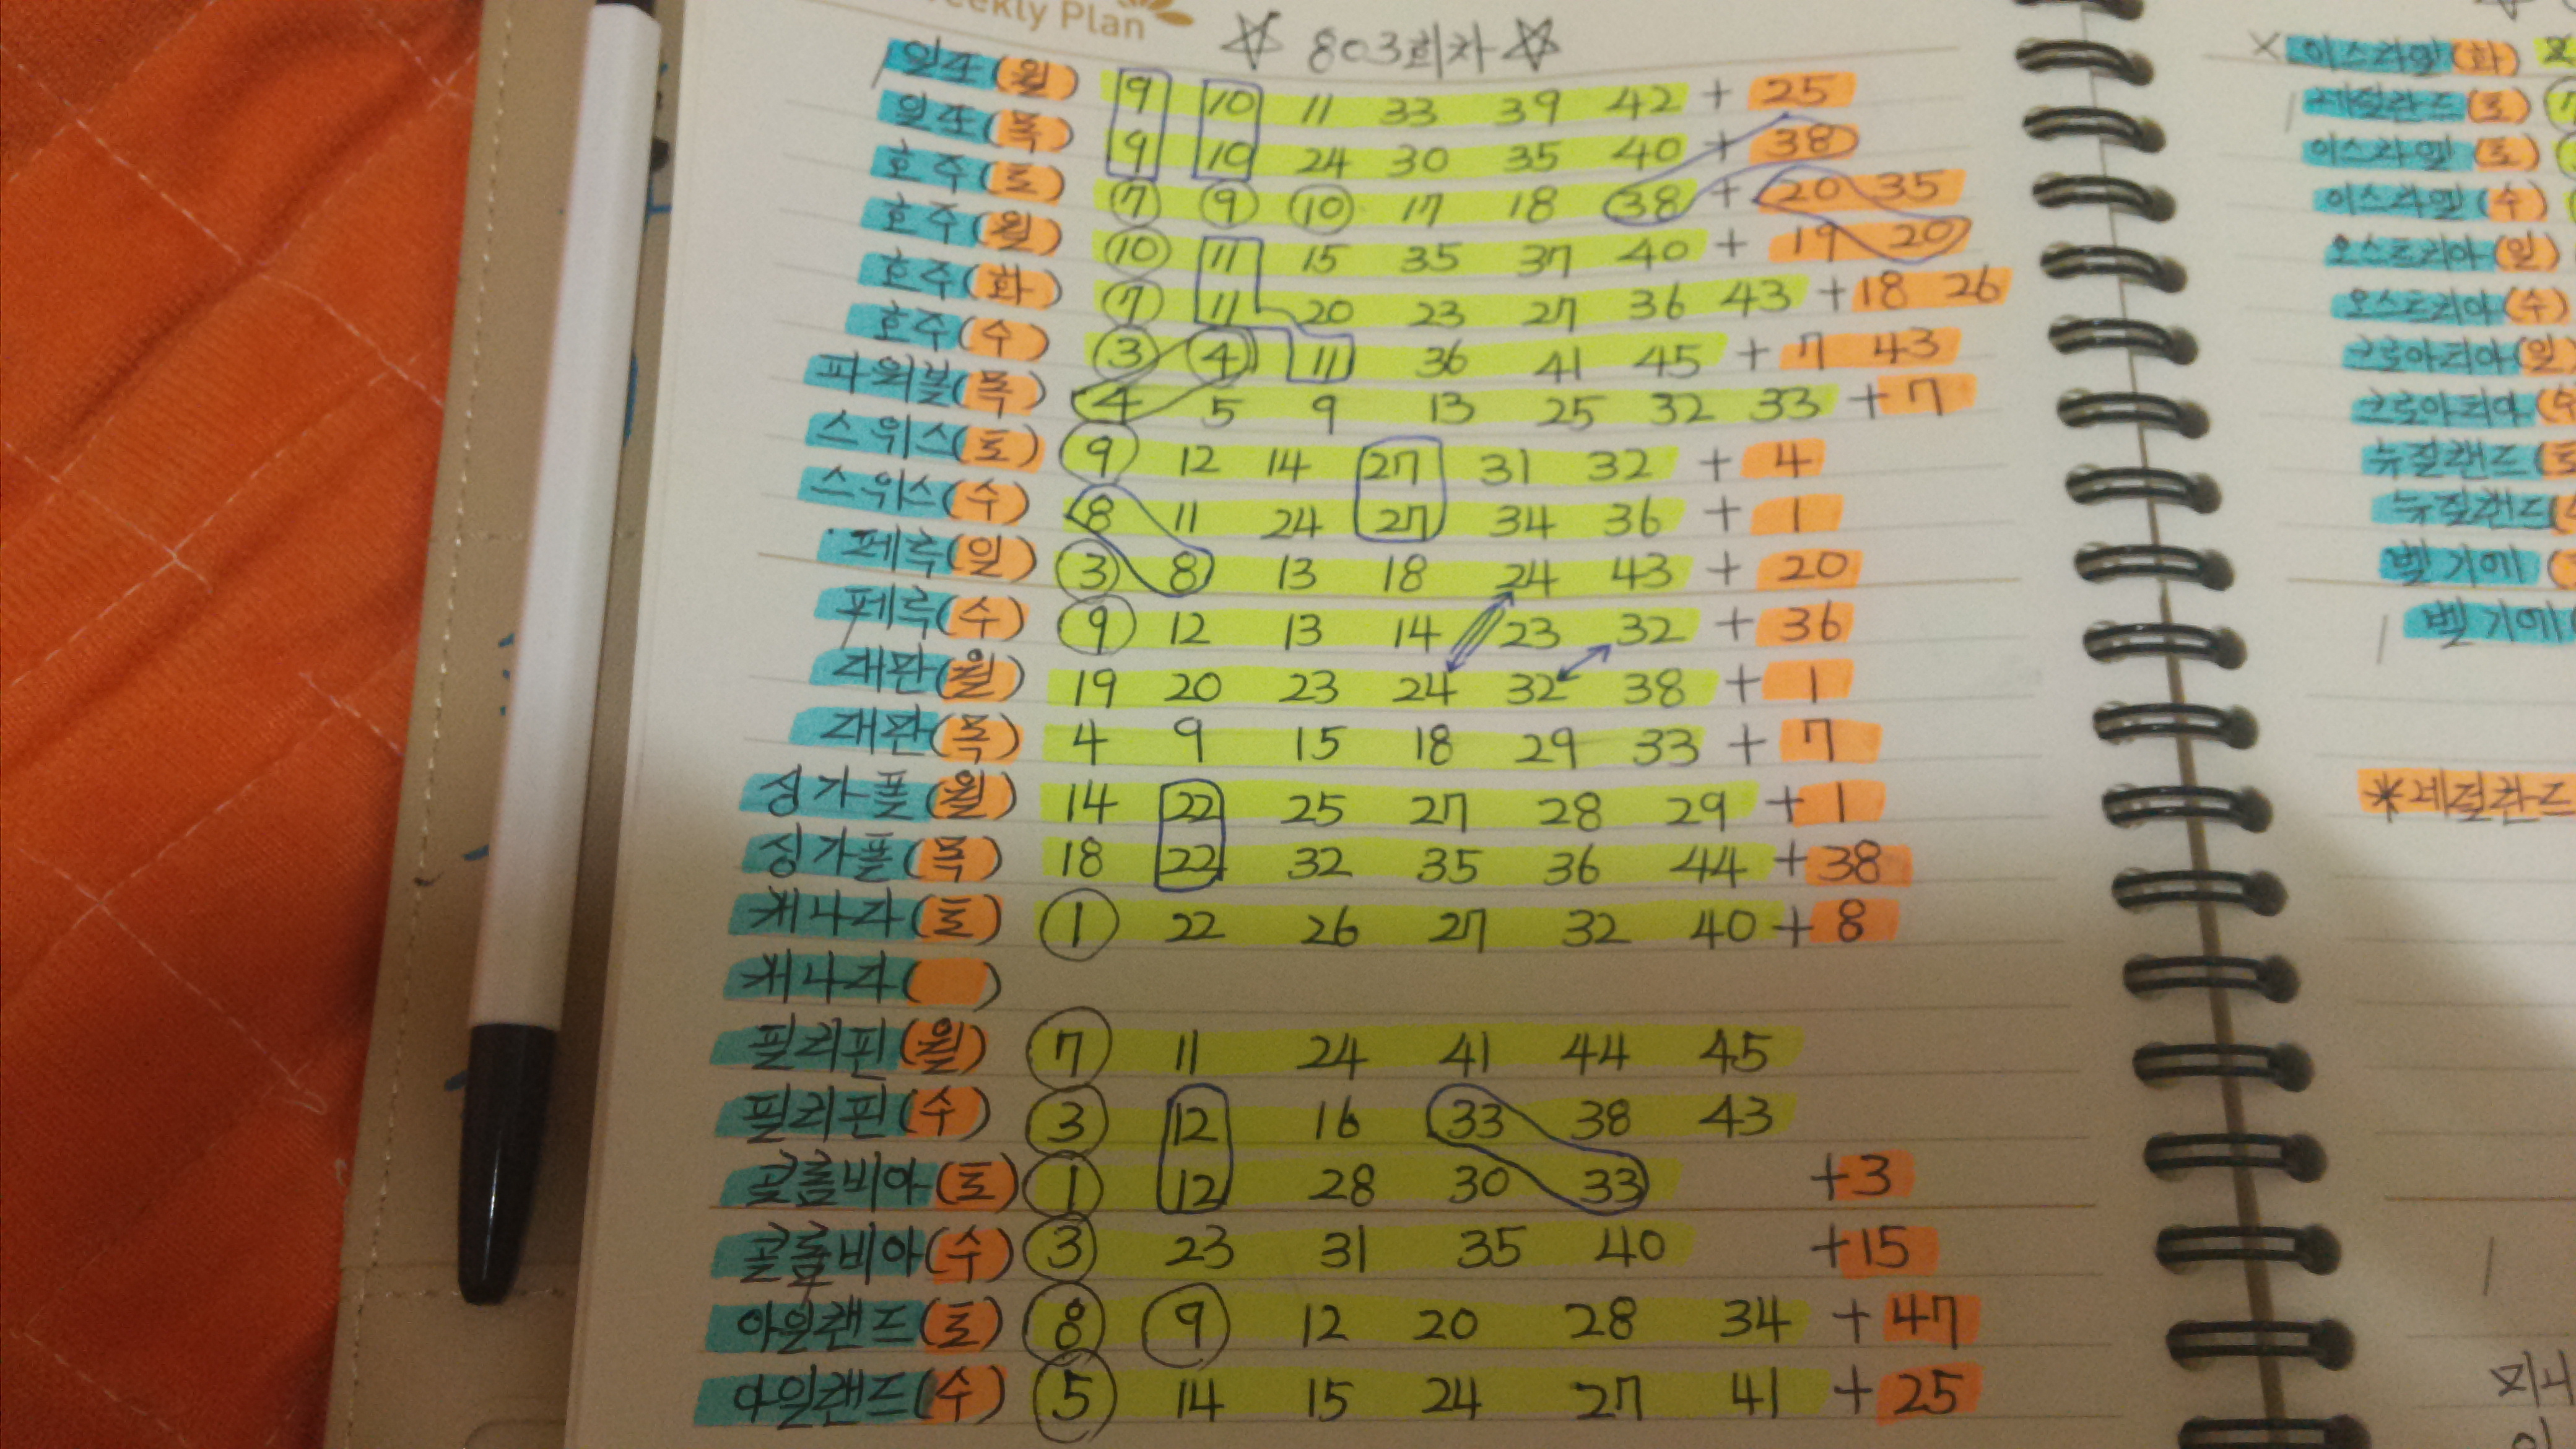 eekly Plan
☆ 803회차 ☆
일본(월) 9 10 11 33 39 42 + 25
일본(목) 9 10 24 30 35 40 + 38
호주(토) 7 9 10 17 18 38 + 20 35
호주(월) 10 11 15 35 37 40 + 19 20
호주(화) 7 11 20 23 27 36 43 + 18 26
호주(수) 3 4 11 36 41 45 + 7 43
파워볼(목) 4 5 9 13 25 32 33 + 7
스위스(토) 9 12 14 27 31 32 + 4
스위스(수) 8 11 24 27 34 36 + 1
페루(일) 3 8 13 18 24 43 + 20
페루(수) 9 12 13 14 23 32 + 36
재팬(월) 19 20 23 24 32 38 + 1
재팬(목) 4 9 15 18 29 33 + 7
싱가폴(월) 14 22 25 27 28 29 + 1
싱가폴(목) 18 22 32 35 36 44 + 38
캐나다(토) 1 22 26 27 32 40 + 8
캐나다( )
필리핀(월) 7 11 24 41 44 45
필리핀(수) 3 12 16 33 38 43
콜롬비아(토) 1 12 28 30 33 + 3
콜롬비아(수) 3 23 31 35 40 + 15
아일랜드(토) 8 9 12 20 28 34 + 47
아일랜드(수) 5 14 15 24 27 41 + 25
× 이스라엘(화)
(토)
이스라엘(토)
이스라엘(수)
오스트리아(일)
오스트리아(수)
크로아티아(일)
크로아티아
뉴질랜드
뉴질랜드
벨기에
벨기에